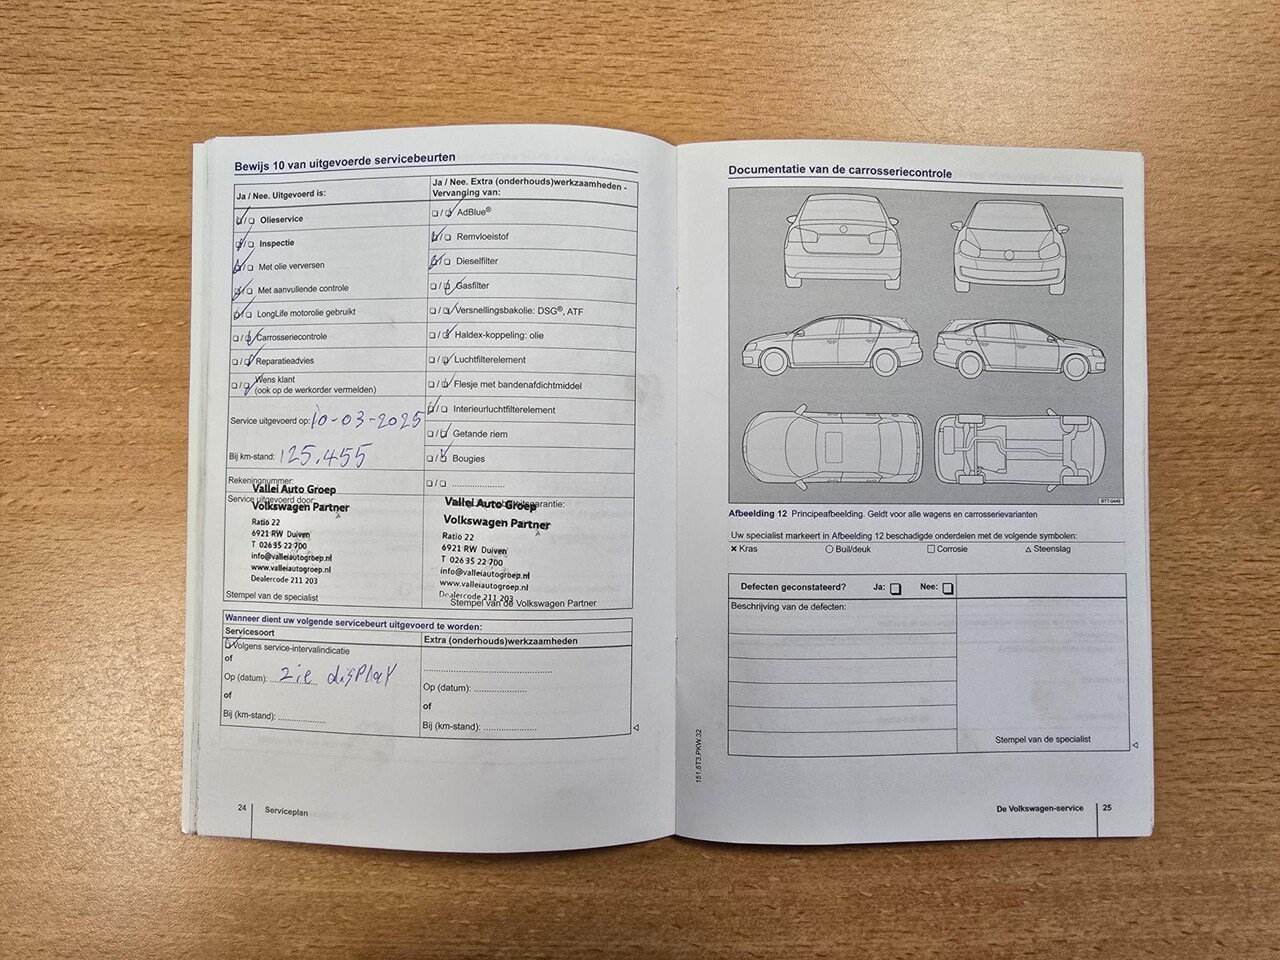 Bewijs 10 van uitgevoerde servicebeurten
Ja / Nee. Uitgevoerd is:
Olieservice
Inspectie
Met olie verversen
Met aanvullende controle
LongLife motorolie gebruikt
Carrosseriecontrole
Reparatieadvies
Wens klant
(ook op de werkorder vermelden)
Service uitgevoerd op: 10-03-2025
Bij km-stand: 125.455
Rekeningnummer:
Service uitgevoerd door:
Vallei Auto Groep
Volkswagen Partner
Ratio 22
6921 RW Duiven
T 026 35 22 700
info@valleiautogroep.nl
www.valleiautogroep.nl
Dealercode 211 203
Stempel van de specialist
Ja / Nee. Extra (onderhouds)werkzaamheden -
Vervanging van:
AdBlue®
Remvloeistof
Dieselfilter
Gasfilter
Versnellingsbakolie: DSG®, ATF
Haldex-koppeling: olie
Luchtfilterelement
Flesje met bandenafdichtmiddel
Interieurluchtfilterelement
Getande riem
Bougies
Vallei Auto Groep
Volkswagen Partner
Ratio 22
6921 RW Duiven
T 026 35 22 700
info@valleiautogroep.nl
www.valleiautogroep.nl
Dealercode 211 203
Stempel van de Volkswagen Partner
Wanneer dient uw volgende servicebeurt uitgevoerd te worden:
Servicesoort
Volgens service-intervalindicatie
of
Op (datum): zie display
of
Bij (km-stand):
Extra (onderhouds)werkzaamheden
Op (datum):
of
Bij (km-stand):
24
Serviceplan
Documentatie van de carrosseriecontrole
BTT-0448
Afbeelding 12 Principeafbeelding. Geldt voor alle wagens en carrosserievarianten
Uw specialist markeert in Afbeelding 12 beschadigde onderdelen met de volgende symbolen:
Kras
Buil/deuk
Corrosie
Steenslag
Defecten geconstateerd? Ja: Nee:
Beschrijving van de defecten:
Stempel van de specialist
151.5T3.PKW.32
De Volkswagen-service
25